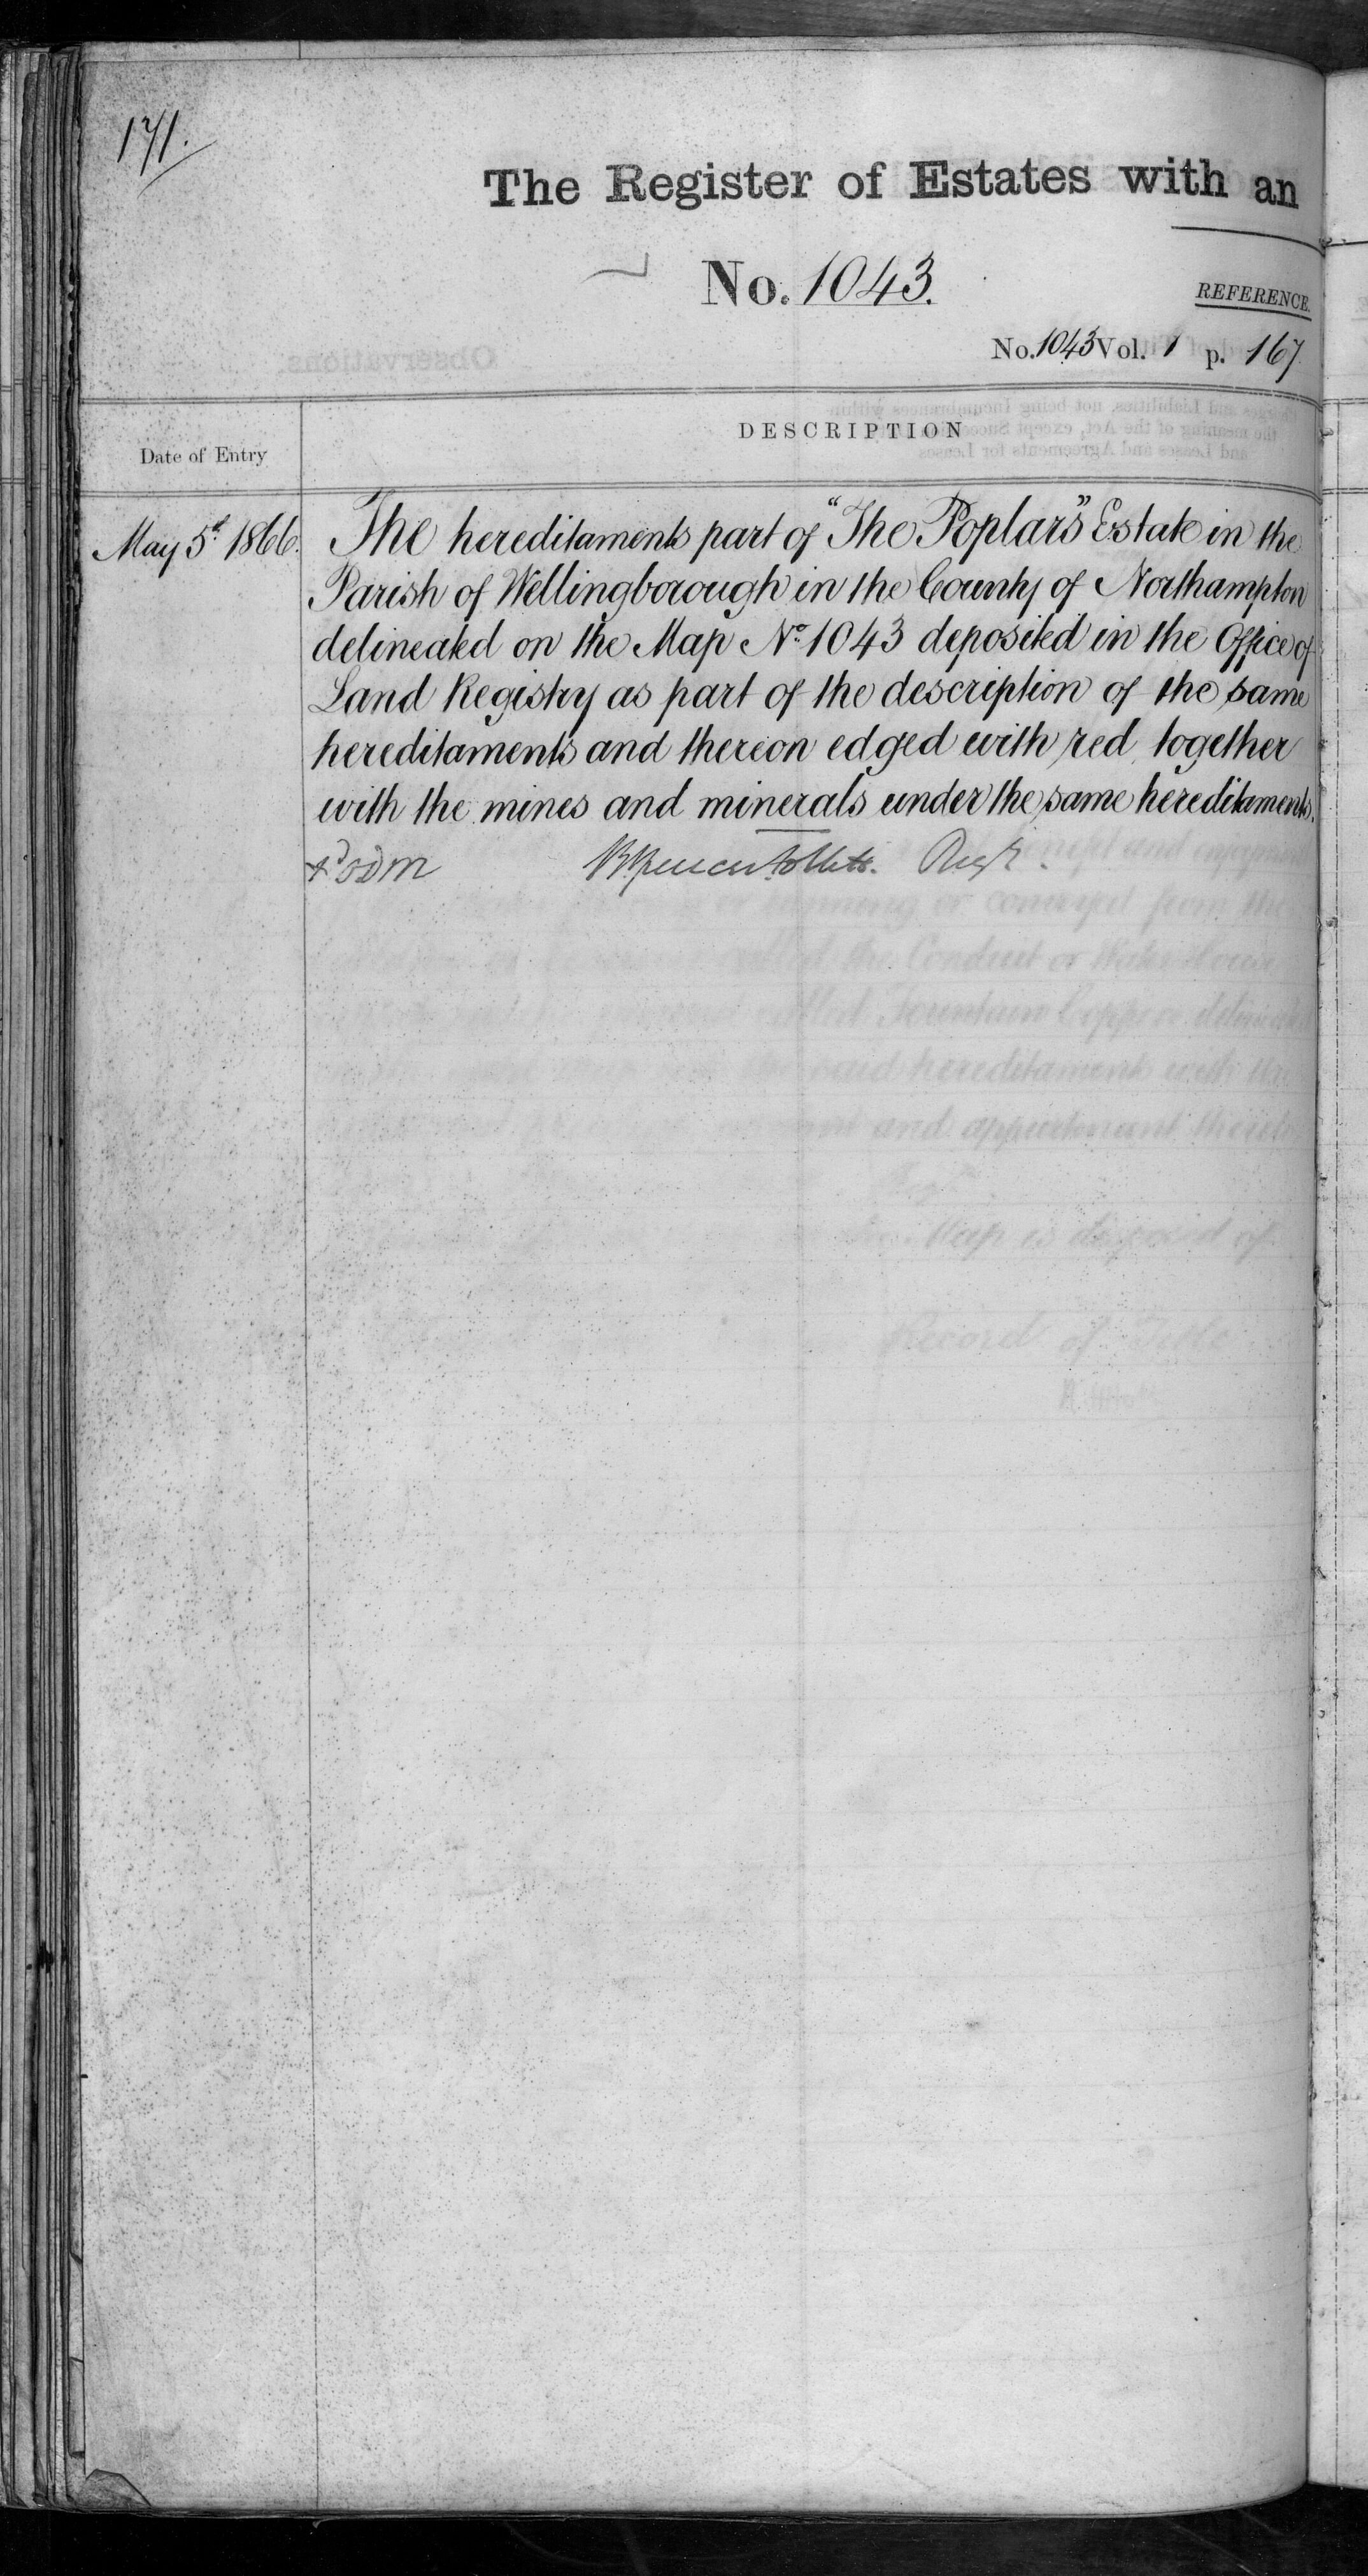 171.
The Register of Estates with an
No. 1043.
REFERENCE.
No. 1043 Vol. 1 p. 167
DESCRIPTION
Date of Entry
May 5th 1866. The hereditaments part of "The Poplars" Estate in the
Parish of Wellingborough in the County of Northampton
delineated on the Map No. 1043 deposited in the Office of
Land Registry as part of the description of the same
hereditaments and thereon edged with red together
with the mines and minerals under the same hereditaments.
Brent Spencer Follett. Regr.